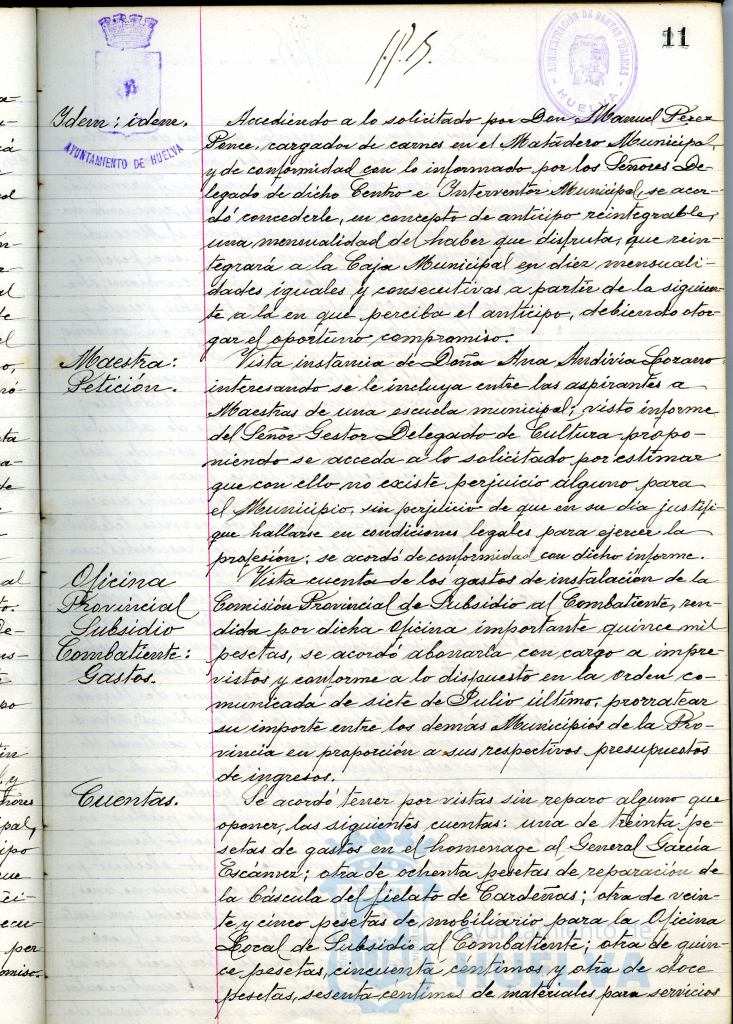 11
ADMINISTRACIÓN DE RENTAS PÚBLICAS
HUELVA
AYUNTAMIENTO DE HUELVA
Idem: idem.
Accediendo a lo solicitado por Don Manuel Pérez
Ponce, cargador de carnes en el Matadero Municipal,
y de conformidad con lo informado por los Señores De-
legado de dicho Centro e Interventor Municipal, se acor-
dó concederle, en concepto de anticipo reintegrable,
una mensualidad del haber que disfruta, que rein-
tegrará a la Caja Municipal en diez mensuali-
dades iguales y consecutivas a partir de la siguien-
te a la en que perciba el anticipo, debiendo otor-
gar el oportuno compromiso.
Maestra:
Petición.
Vista instancia de Doña Ana Andivia Lozano
interesando se le incluya entre las aspirantes a
Maestras de una escuela municipal; visto informe
del Señor Gestor Delegado de Cultura propo-
niendo se acceda a lo solicitado por estimar
que con ello no existe perjuicio alguno para
el Municipio, sin perjuicio de que en su día justifi-
que hallarse en condiciones legales para ejercer la
profesión; se acordó de conformidad con dicho informe.
Oficina
Provincial
Subsidio
Combatiente:
Gastos.
Vista cuenta de los gastos de instalación de la
Comisión Provincial de Subsidio al Combatiente, ren-
dida por dicha Oficina importante quince mil
pesetas, se acordó abonarla con cargo a impre-
vistos y conforme a lo dispuesto en la orden co-
municada de siete de Julio último, prorratear
su importe entre los demás Municipios de la Pro-
vincia en proporción a sus respectivos presupuestos
de ingresos.
Cuentas.
Se acordó tener por vistas sin reparo alguno que
oponer, las siguientes cuentas: una de treinta pe-
setas de gastos en el homenage al General García
Escámez; otra de ochenta pesetas de reparación de
la báscula del fielato de Cardeñas; otra de vein-
te y cinco pesetas de mobiliario para la Oficina
Local de Subsidio al Combatiente; otra de quin-
ce pesetas, cincuenta céntimos y otra de doce
pesetas, sesenta céntimos de materiales para servicios
Ayuntamiento de
HUELVA